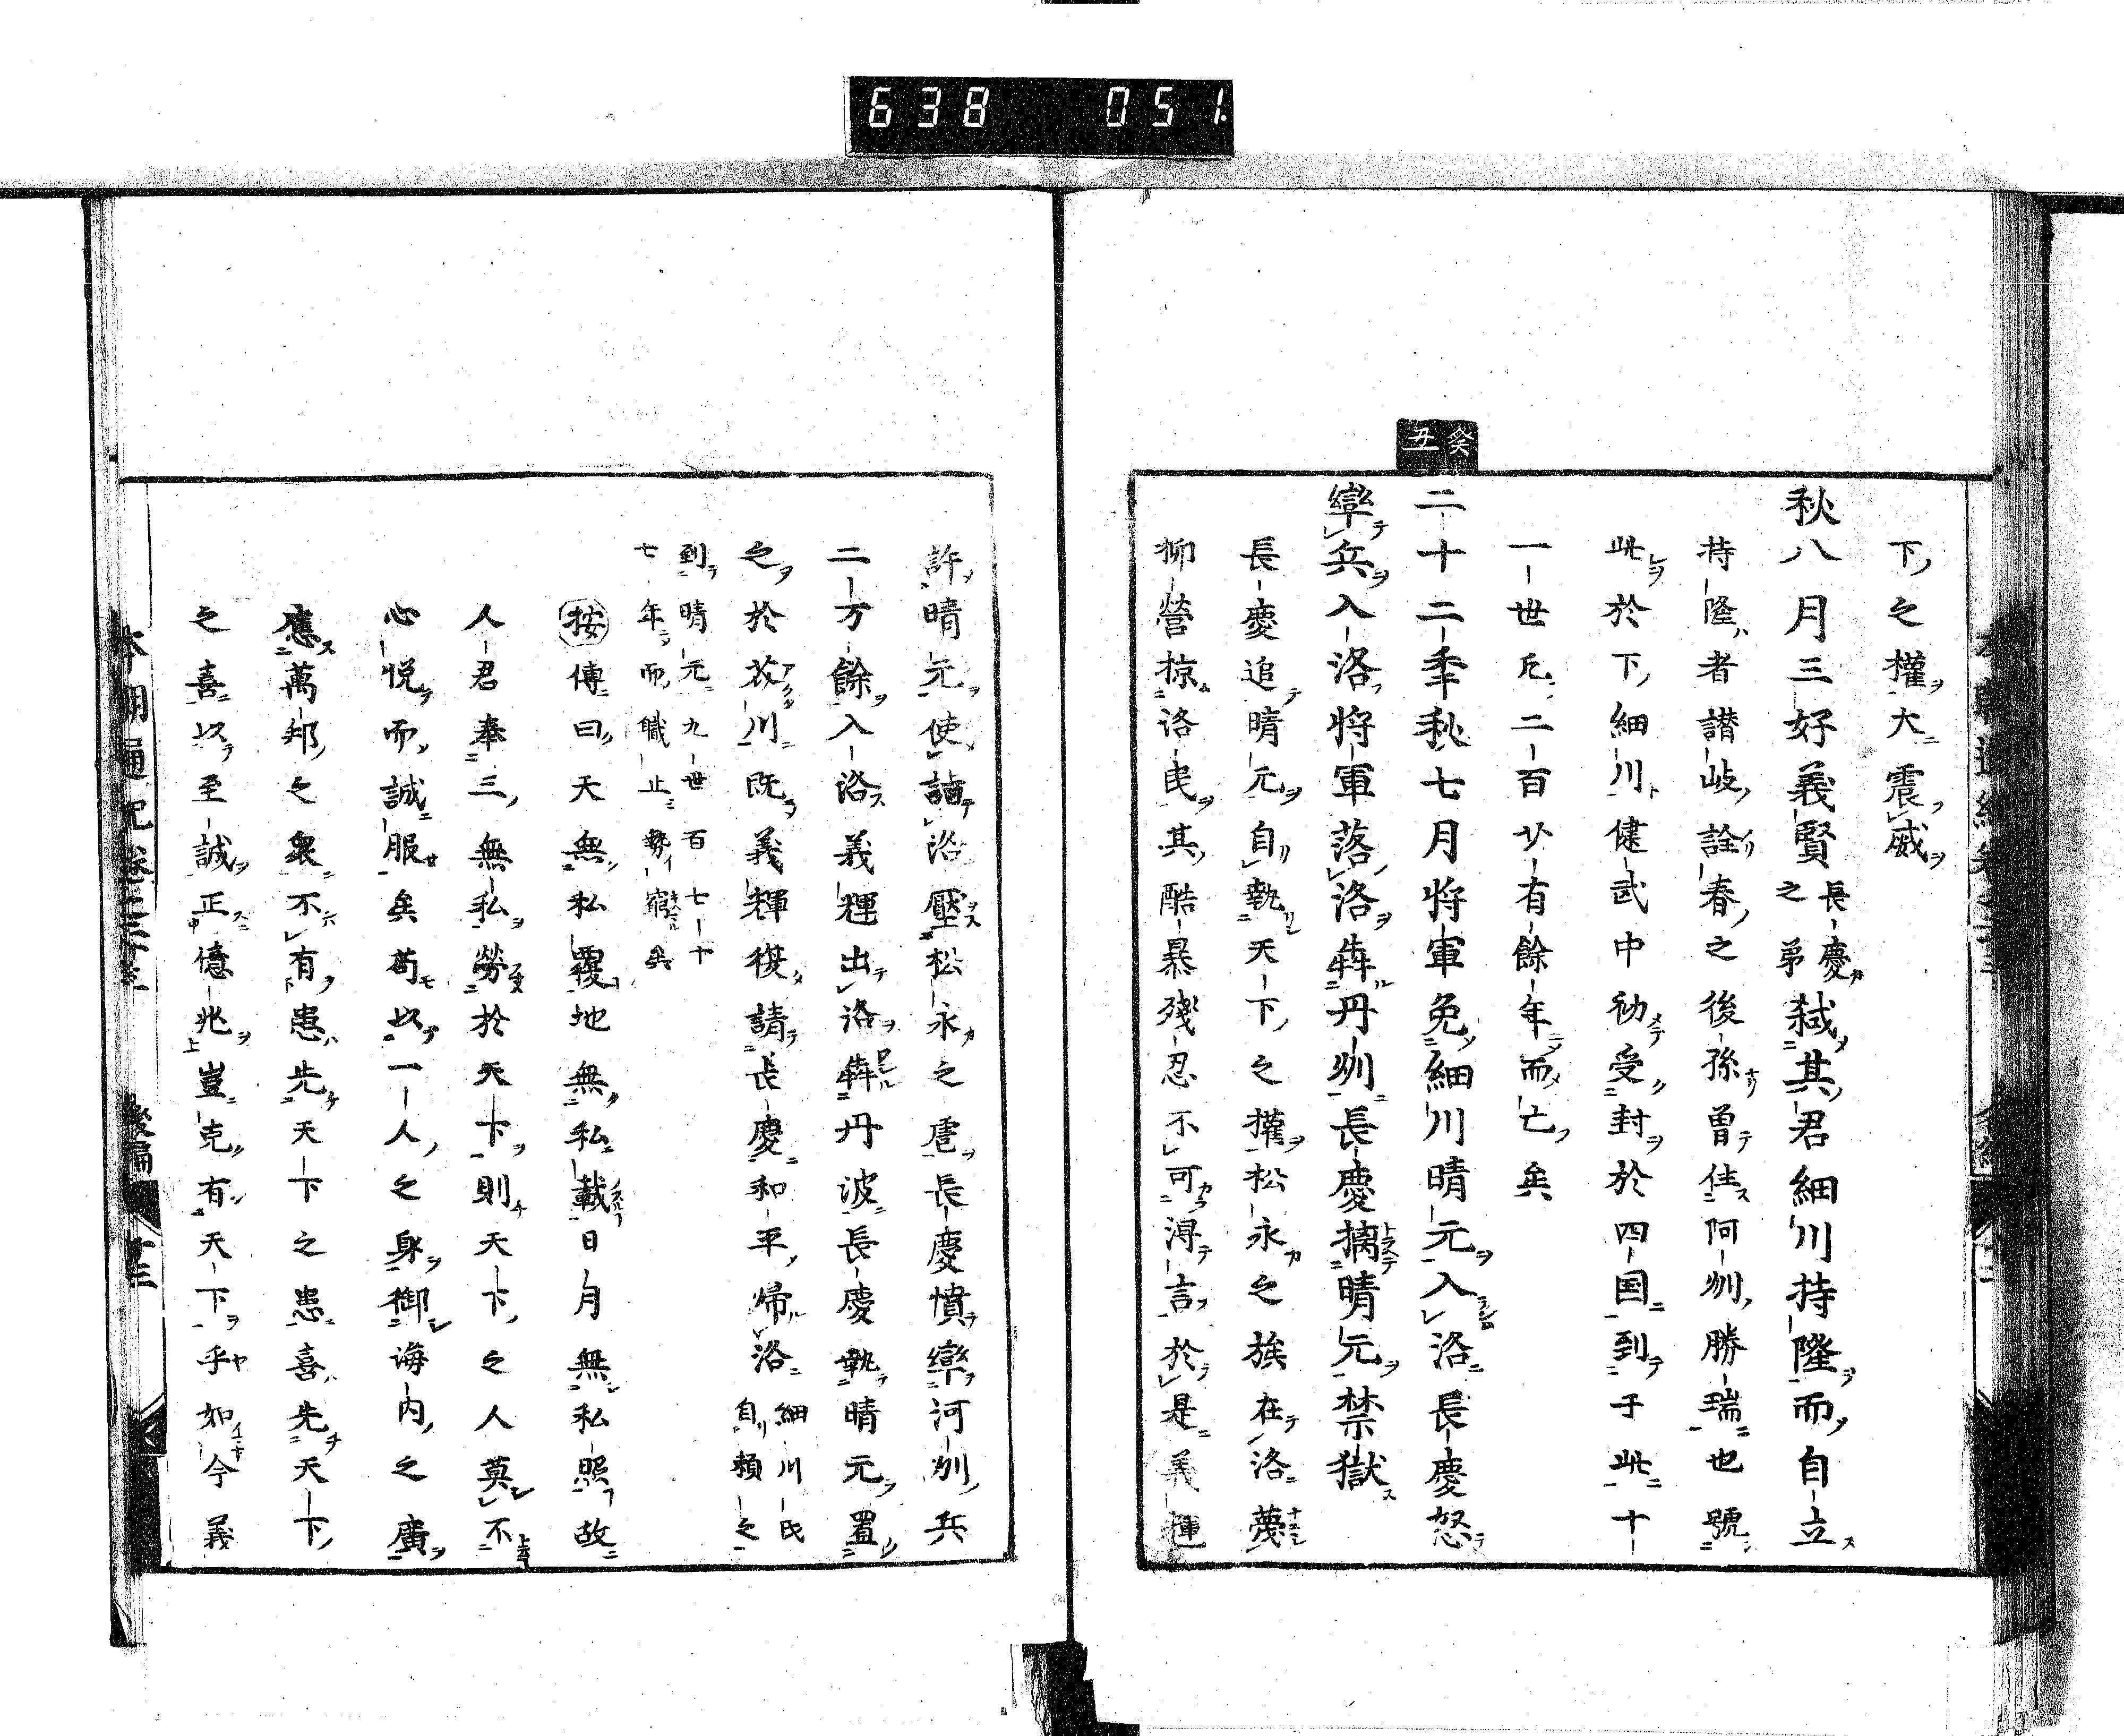 638 051
下之權大震威
秋八月三好義賢長慶之弟弑其君細川持隆而自立
持隆者讃岐詮春之後孫曽住阿州勝瑞也號
此於下細川健武中初受封於四国到于此十
一世凡二百廿有餘年而亡矣
癸丑
二十二年秋七月将軍免細川晴元入洛長慶怒
率兵入洛将軍落洛犇丹州長慶擒晴元禁獄
長慶追晴元自執天下之權松永之族在洛蔑
柳營掠洛民其酷暴残忍不可得言於是義輝
許晴元使詣洛壓松永之虐長慶憤率河州兵
二万餘入洛義輝出洛犇丹波長慶執晴元置
之於芥川既義輝復請長慶和平帰洛細川氏自頼之
到晴元九世百七十
七年而職止勢窮矣
按傳曰天無私覆地無私載日月無私照故
人君奉三無私勞於天下則天下之人莫不
心悦而誠服矣苟以一人之身御海内之廣
應萬邦之衆不有患先天下之患喜先天下
之喜以至誠正億兆豈克有天下乎如今義
本朝通紀卷 後編